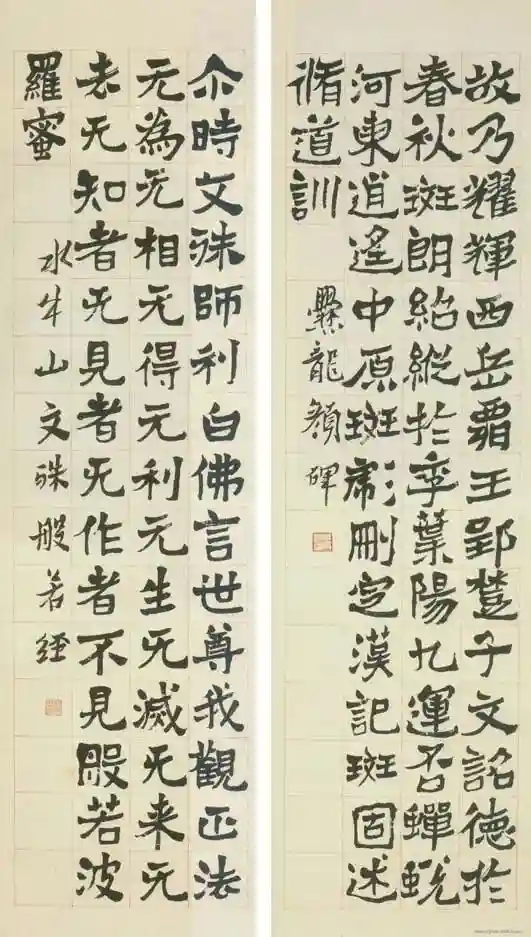 故乃耀輝西岳霸王郢楚子文詔德於
春秋斑朗紹縱於季葉陽九運否蟬蛻
河東逍遙中原斑彪刪定漢記斑固述
脩道訓
爨龍顏碑
尒時文殊師利白佛言世尊我觀正法
无為无相无得无利无生无滅无来无
去无知者无見者无作者不見般若波
羅蜜
水牛山文殊般若經